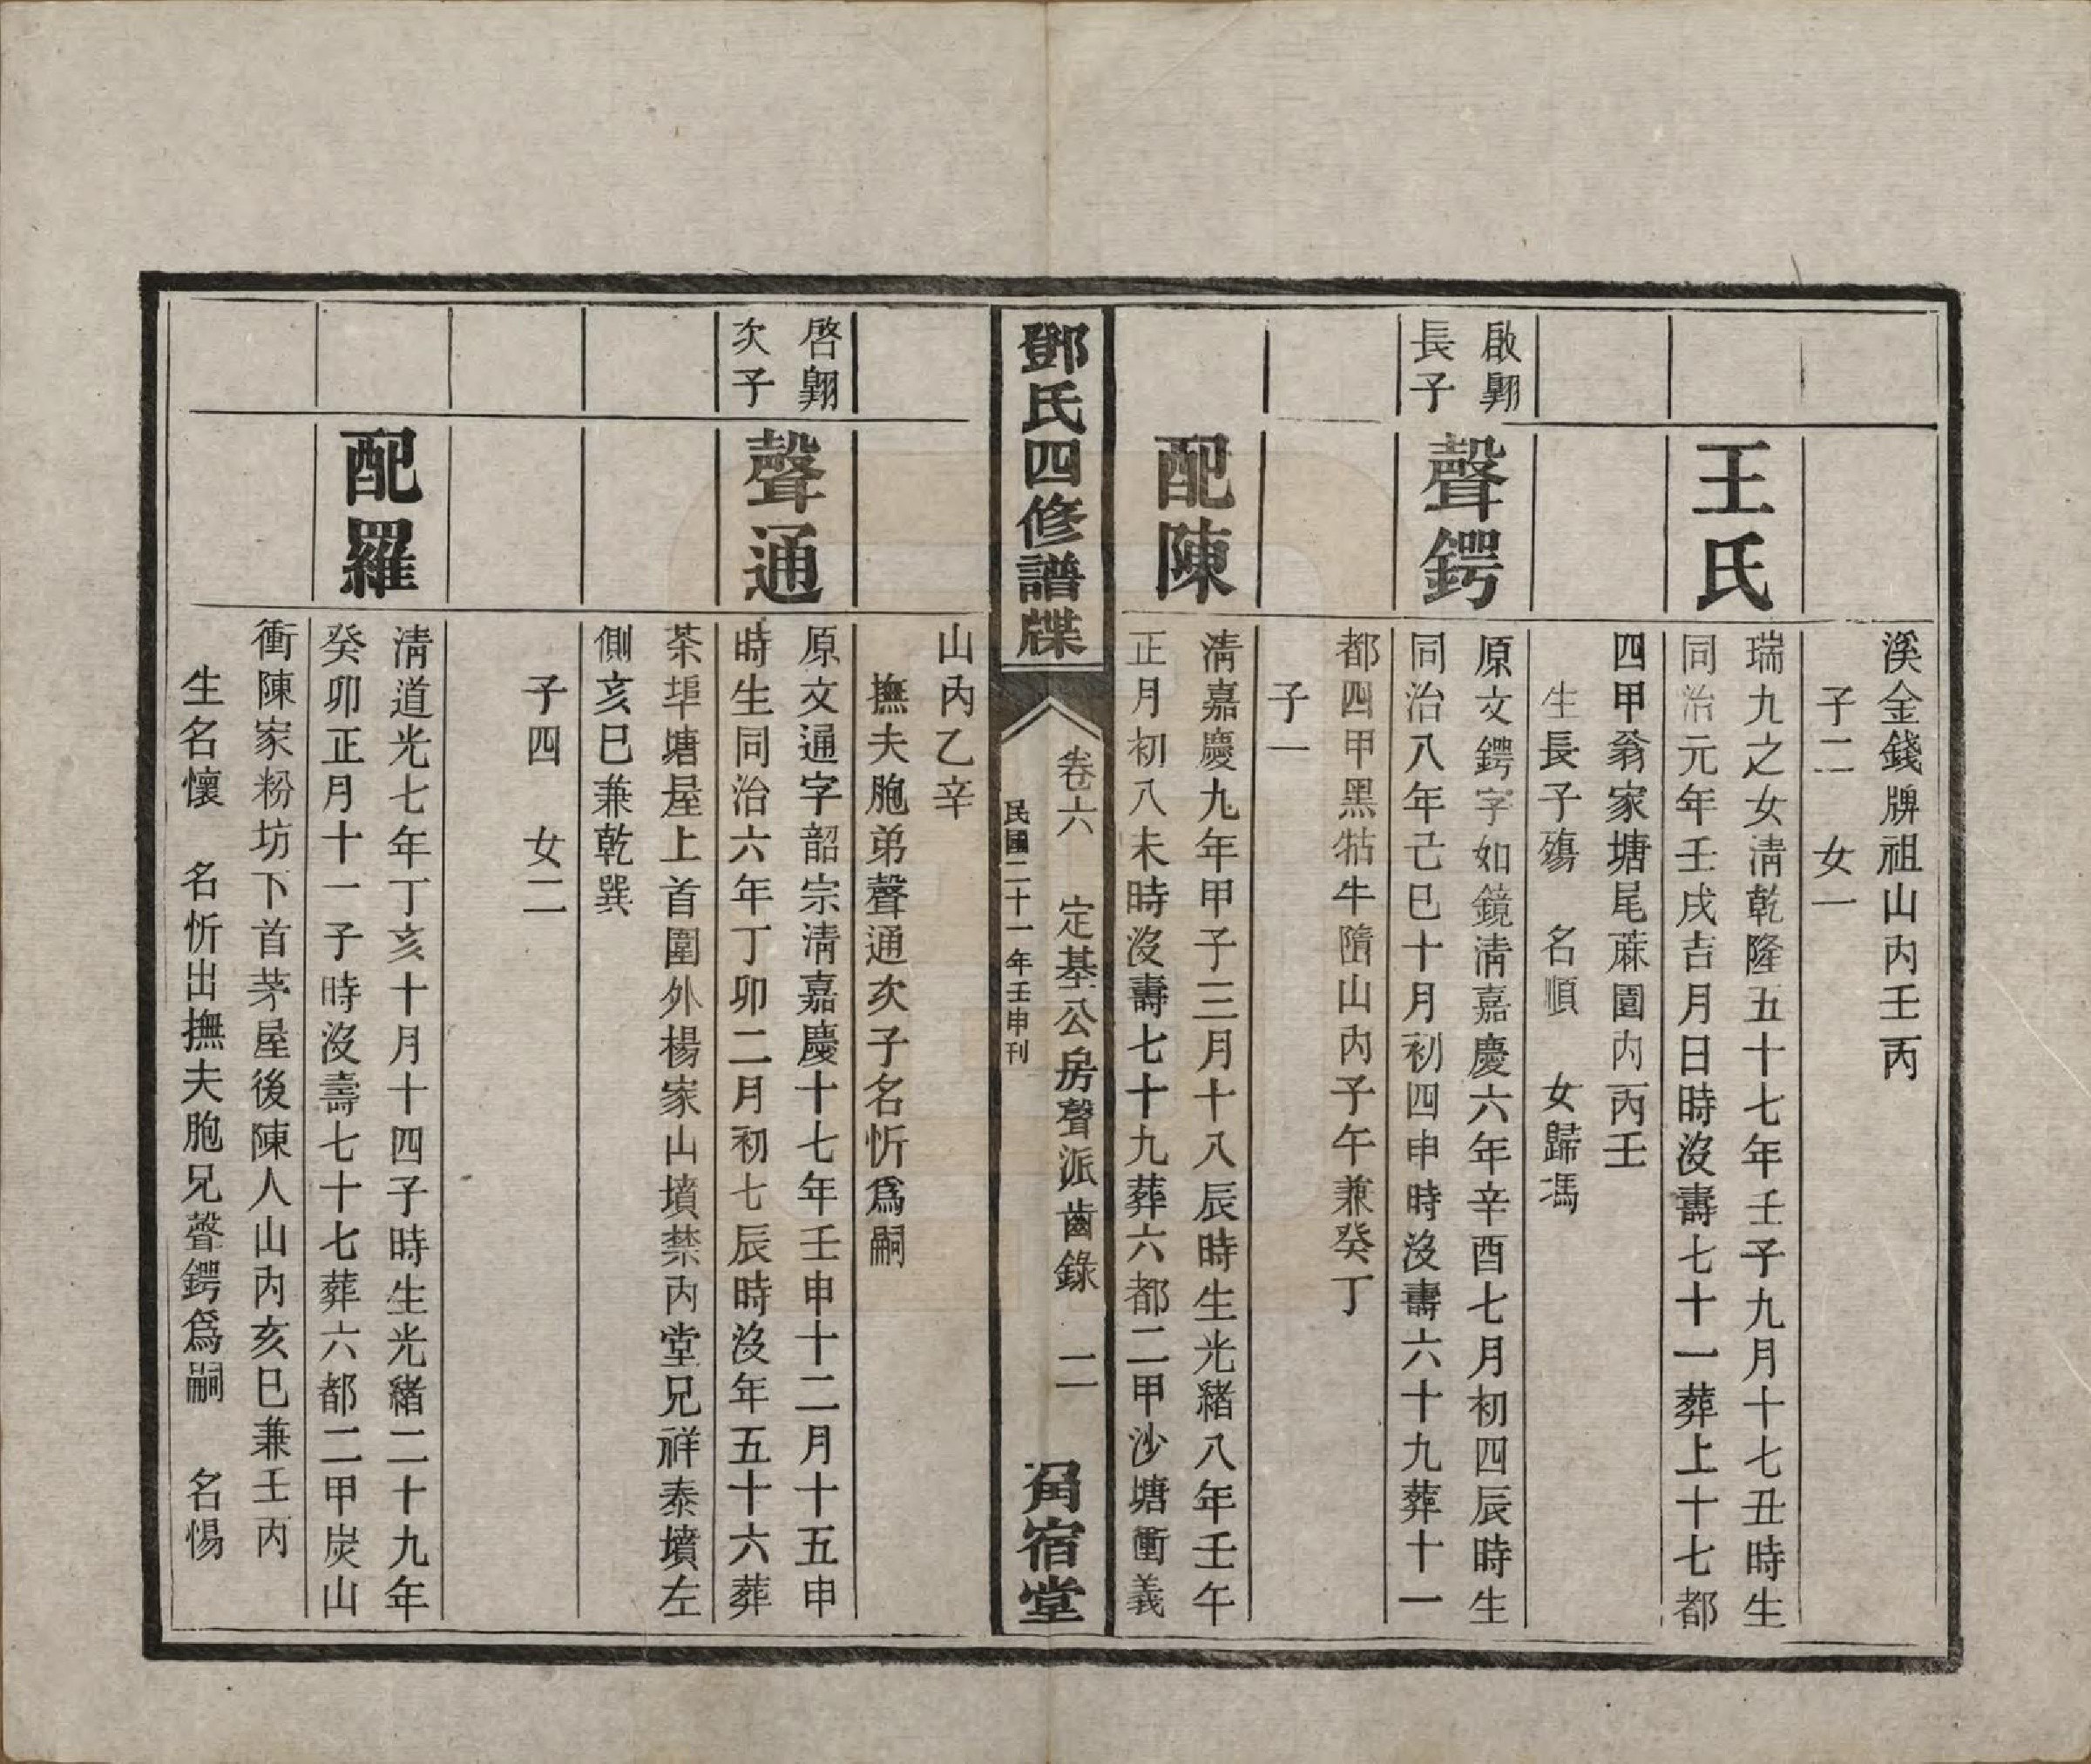 溪金錢牌祖山内壬丙
子二　女一
王氏
瑞九之女淸乾隆五十七年壬子九月十七丑時生
同治元年壬戌吉月日時沒壽七十一葬上十七都
四甲翁家塘尾蔴園内丙壬
生長子殤　名順　女歸馮
啟翺
長子
聲鍔
原文鍔字如鏡淸嘉慶六年辛酉七月初四辰時生
同治八年己巳十月初四申時沒壽六十九葬十一
都四甲黑牯牛隋山内子午兼癸丁
子一
配陳
淸嘉慶九年甲子三月十八辰時生光緒八年壬午
正月初八未時沒壽七十九葬六都二甲沙塘衝義
鄧氏四修譜牒
卷六　定基公房聲派齒錄　二
民國二十一年壬申刊
角宿堂
山内乙辛
撫夫胞弟聲通次子名忻爲嗣
啓翺
次子
聲通
原文通字韶宗淸嘉慶十七年壬申十二月十五申
時生同治六年丁卯二月初七辰時沒年五十六葬
茶埠塘屋上首圍外楊家山墳禁内堂兄祥泰墳左
側亥巳兼乾巽
子四　女二
配羅
淸道光七年丁亥十月十四子時生光緒二十九年
癸卯正月十一子時沒壽七十七葬六都二甲炭山
衝陳家粉坊下首茅屋後陳人山内亥巳兼壬丙
生名懷　名忻出撫夫胞兄聲鍔爲嗣　名惕